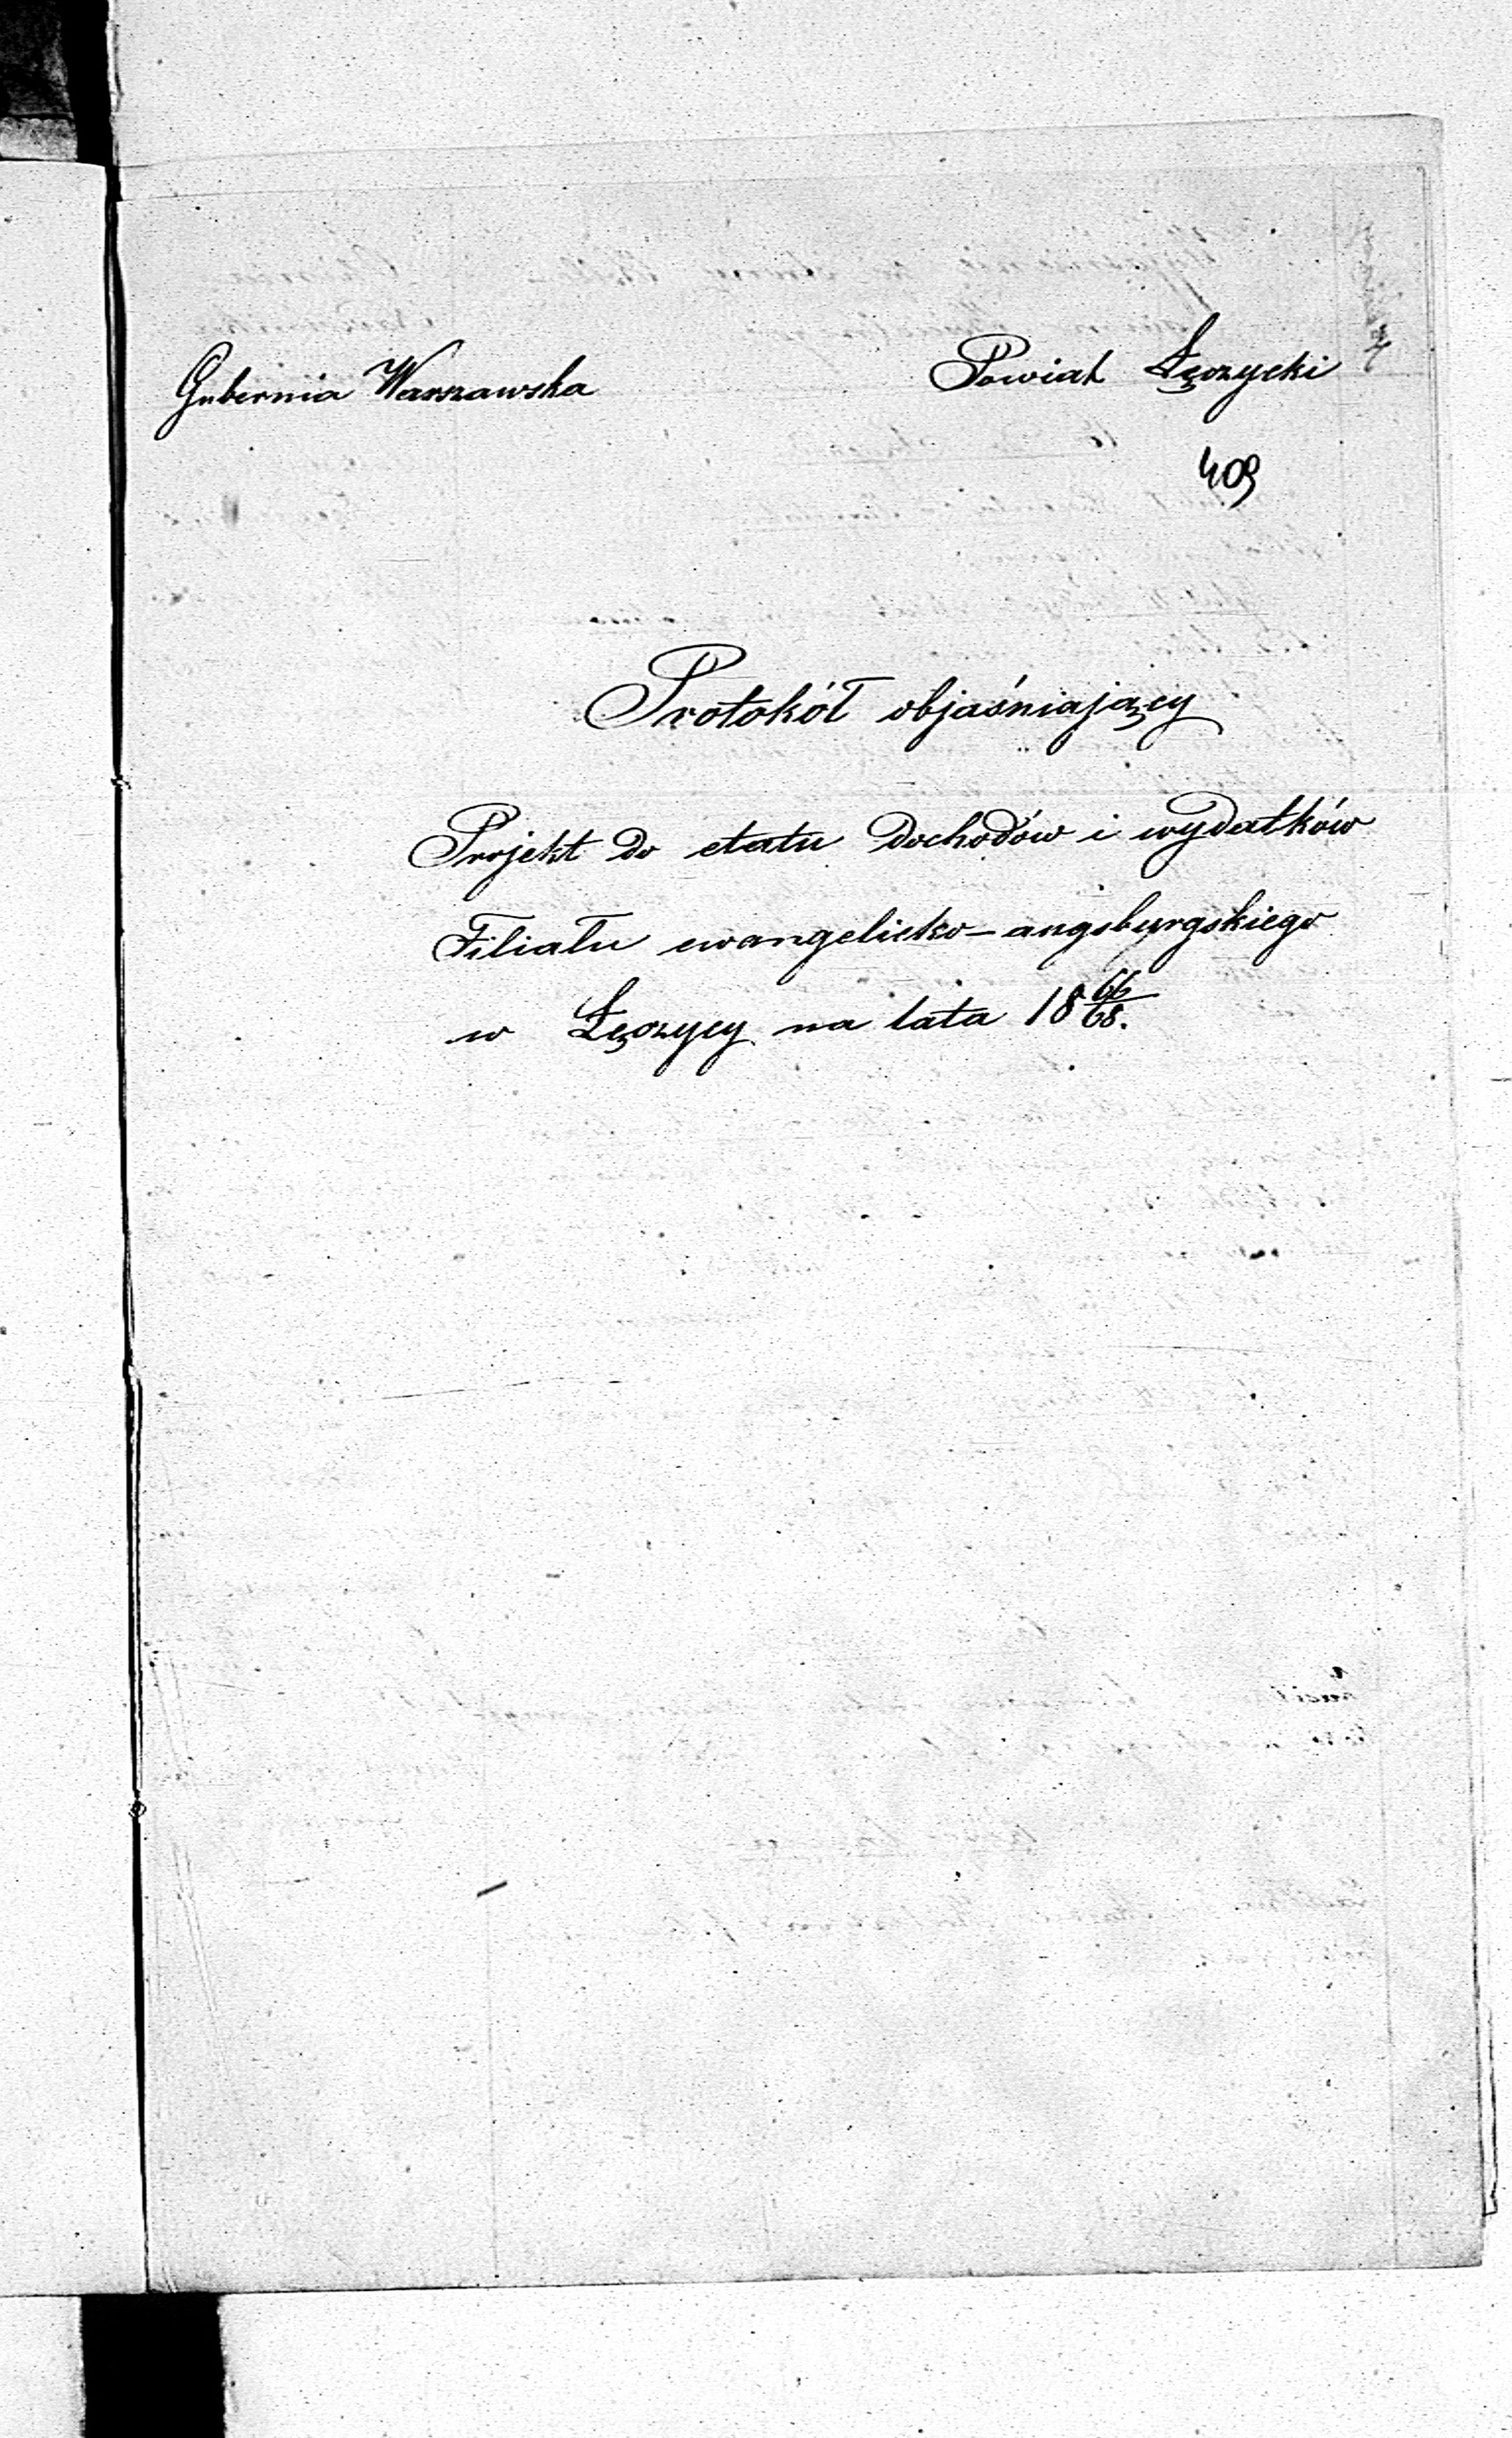 Gubernia Warszawska Powiat Łęczycki
409
Protokół objaśniający
Projekt do etatu dochodów i wydatków
Filiału ewangelicko-augsburgskiego
w Łęczycy na lata 18 66/68.